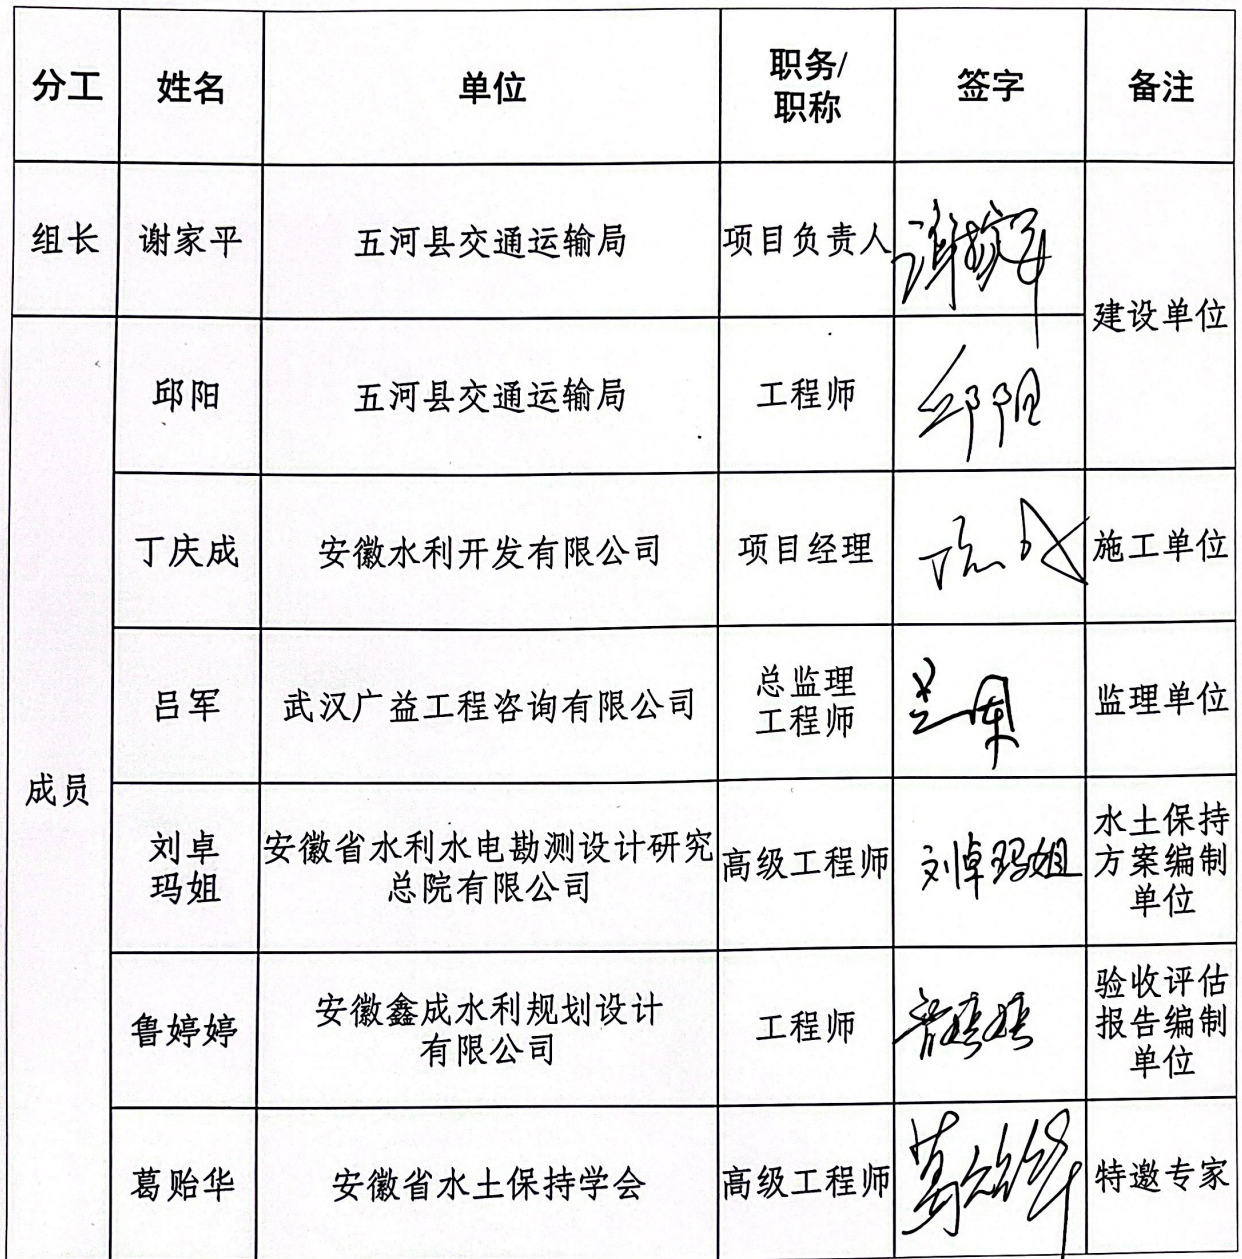 分工 姓名 单位 职务/职称 签字 备注
组长 谢家平 五河县交通运输局 项目负责人 谢家平 建设单位
成员 邱阳 五河县交通运输局 工程师 邱阳
丁庆成 安徽水利开发有限公司 项目经理 丁庆成 施工单位
吕军 武汉广益工程咨询有限公司 总监理工程师 吕军 监理单位
刘卓玛姐 安徽省水利水电勘测设计研究总院有限公司 高级工程师 刘卓玛姐 水土保持方案编制单位
鲁婷婷 安徽鑫成水利规划设计有限公司 工程师 鲁婷婷 验收评估报告编制单位
葛贻华 安徽省水土保持学会 高级工程师 葛贻华 特邀专家